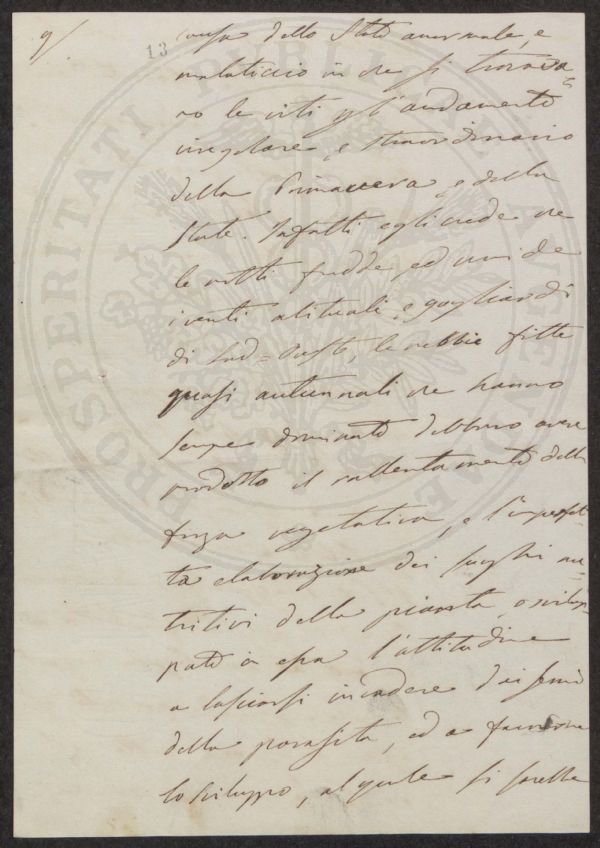 9/
13
causa dello Stato anormale, e
malaticcio in che si trovava=
no le viti p l'andamento
irregolare, e straordinario
della Primavera, e della
State. Infatti egli crede che
le notti fredde, ed umide
i venti abituali, e gagliardi
di Sud=Ovest, le nebbie fitte
quasi autunnali che hanno
sempre dominato debbano avere
prodotto il rallentamento della
forza vegetativa, e l'imperfet=
ta elaborazione dei sughi nu=
tritivi della pianta, e svilup=
pato in essa l'attitudine
a lasciarsi invadere dai semi
della parasita, ed a favorirne
lo sviluppo, al quale si sarebbe
PROSPERITATI PUBLICAE AUGENDAE